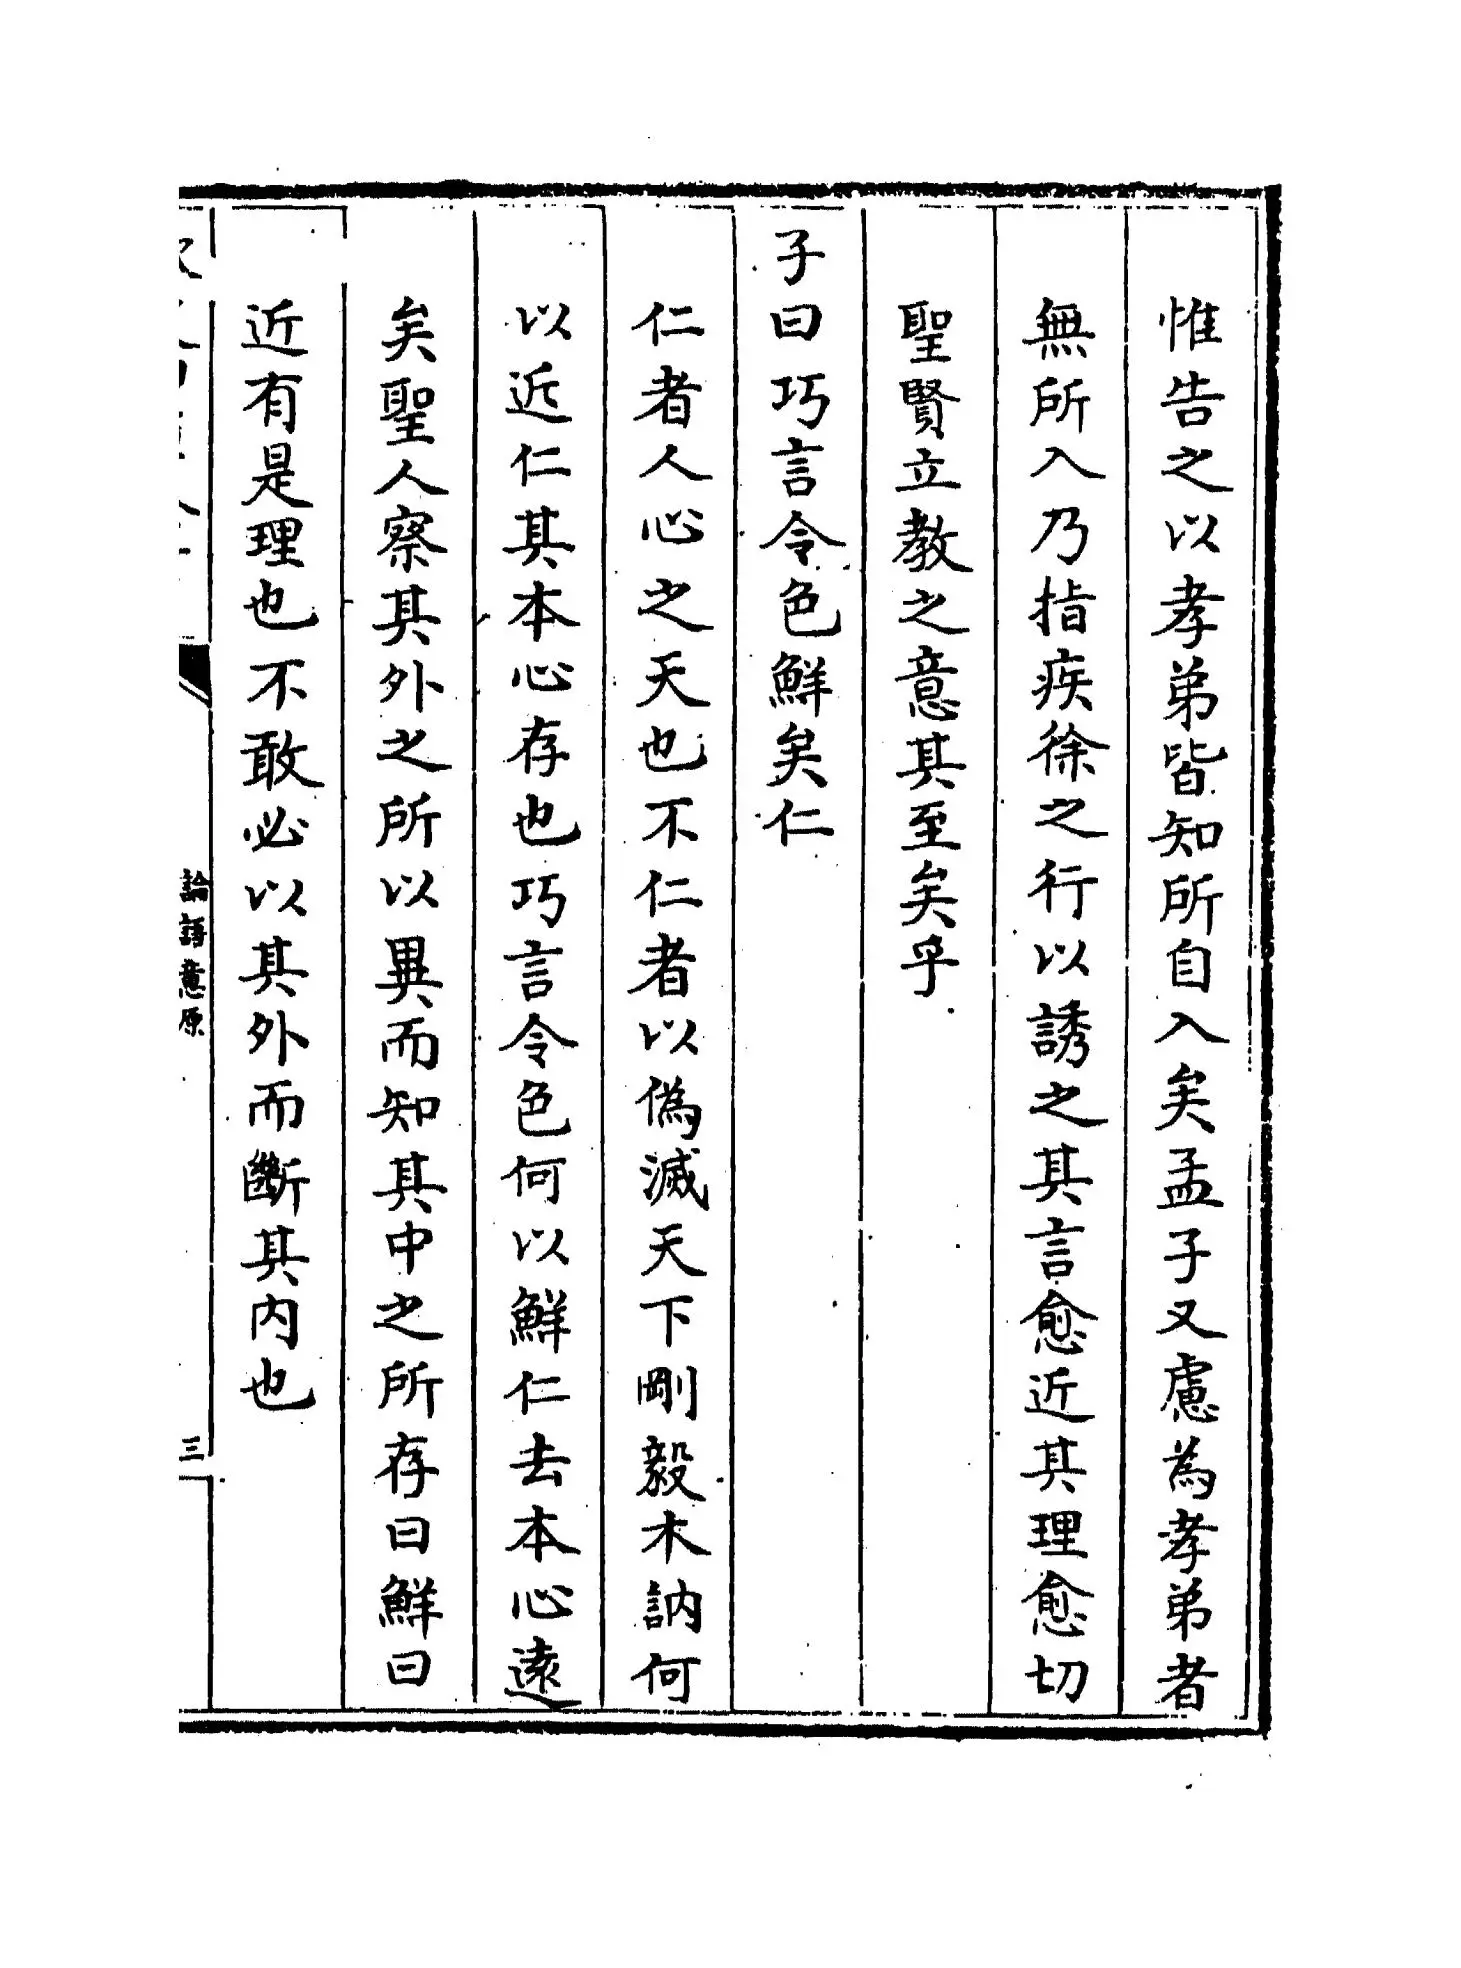 惟告之以孝弟皆知所自入矣孟子又慮為孝弟者
無所入乃指疾徐之行以誘之其言愈近其理愈切
聖賢立教之意其至矣乎
子曰巧言令色鮮矣仁
仁者人心之天也不仁者以偽滅天下剛毅木訥何
以近仁其本心存也巧言令色何以鮮仁去本心遠
矣聖人察其外之所以異而知其中之所存曰鮮曰
近有是理也不敢必以其外而斷其内也
論語意原
三